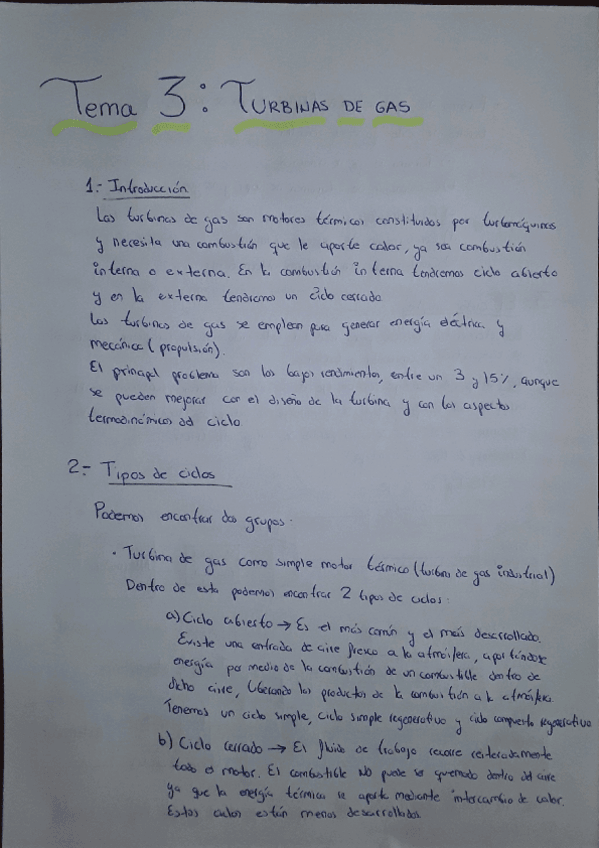 Tema 3: TURBINAS DE GAS
1.- Introducción
Las turbinas de gas son motores térmicos constituidos por turbomáquinas
y necesita una combustión que le aporte calor, ya sea combustión
interna o externa. En la combustión interna tendremos ciclo abierto
y en la externa tendremos un ciclo cerrado
Las turbinas de gas se emplean para generar energía eléctrica y
mecánica (propulsión).
El principal problema son los bajos rendimientos, entre un 3 y 15%, aunque
se pueden mejorar con el diseño de la turbina y con los aspectos
termodinámicos del ciclo.
2.- Tipos de ciclos
Podemos encontrar dos grupos.
· Turbina de gas como simple motor térmico (turbina de gas industrial)
Dentro de esta podemos encontrar 2 tipos de ciclos:
a) Ciclo abierto → Es el más común y el más desarrollado.
Existe una entrada de aire fresco a la atmósfera, aportándose
energía por medio de la combustión de un combustible dentro de
dicho aire, liberando los productos de la combustión a la atmósfera.
Tenemos un ciclo simple, ciclo simple regenerativo y ciclo compuesto regenerativo
b) Ciclo cerrado → El fluido de trabajo recorre reiteradamente
todo el motor. El combustible NO puede ser quemado dentro del aire
ya que la energía térmica se aporta mediante intercambio de calor.
Estos ciclos están menos desarrollados